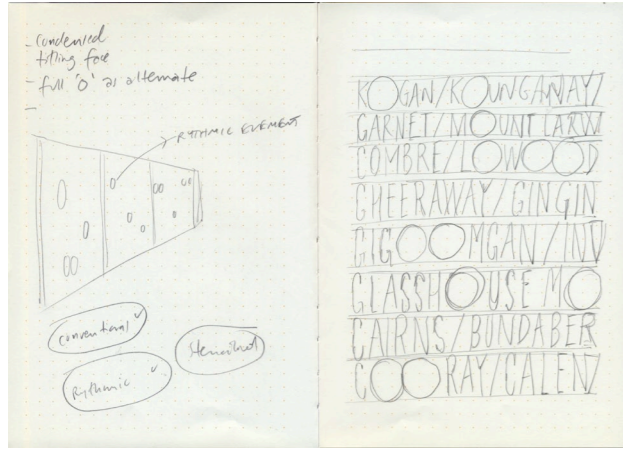 - Condensed
titling face
- full 'O' as alternate
-
RYTHMIC ELEMENT
conventional
Stencilled
Rythmic
KOGAN/KOUNGAWAY/
GARNET/MOUNT LARW
COMBRE/LOWOOD
CHEERAWAY/GINGIN
GIGOOMGAN/INV
GLASSHOUSE MO
CAIRNS/BUNDABER
COORAY/CALEN